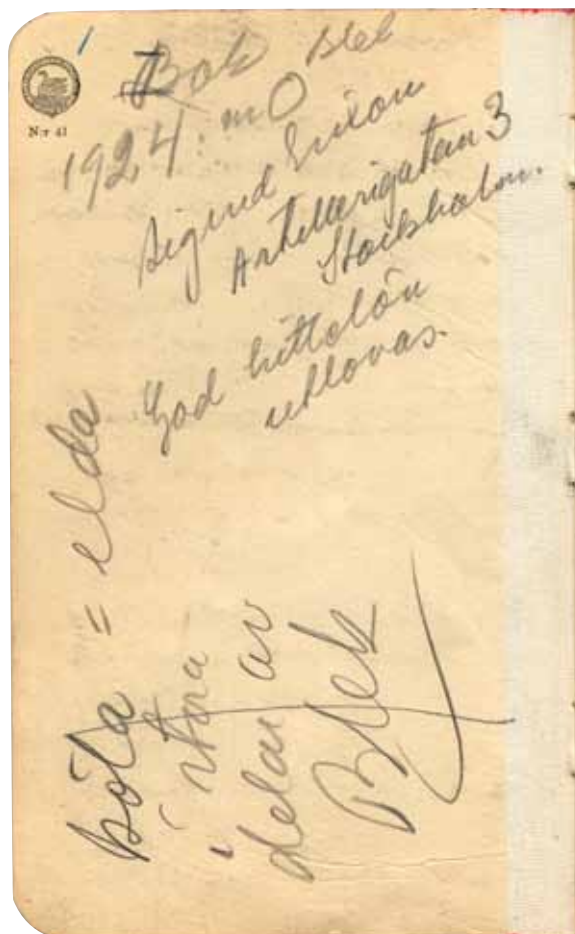 I
N:r 41
Bok
1924: m O Blek
Sigurd Erixon
Artillerigatan 3
Stockholm.
God hittelön
utlovas.
böla = elda
i stora
delar av
Blek